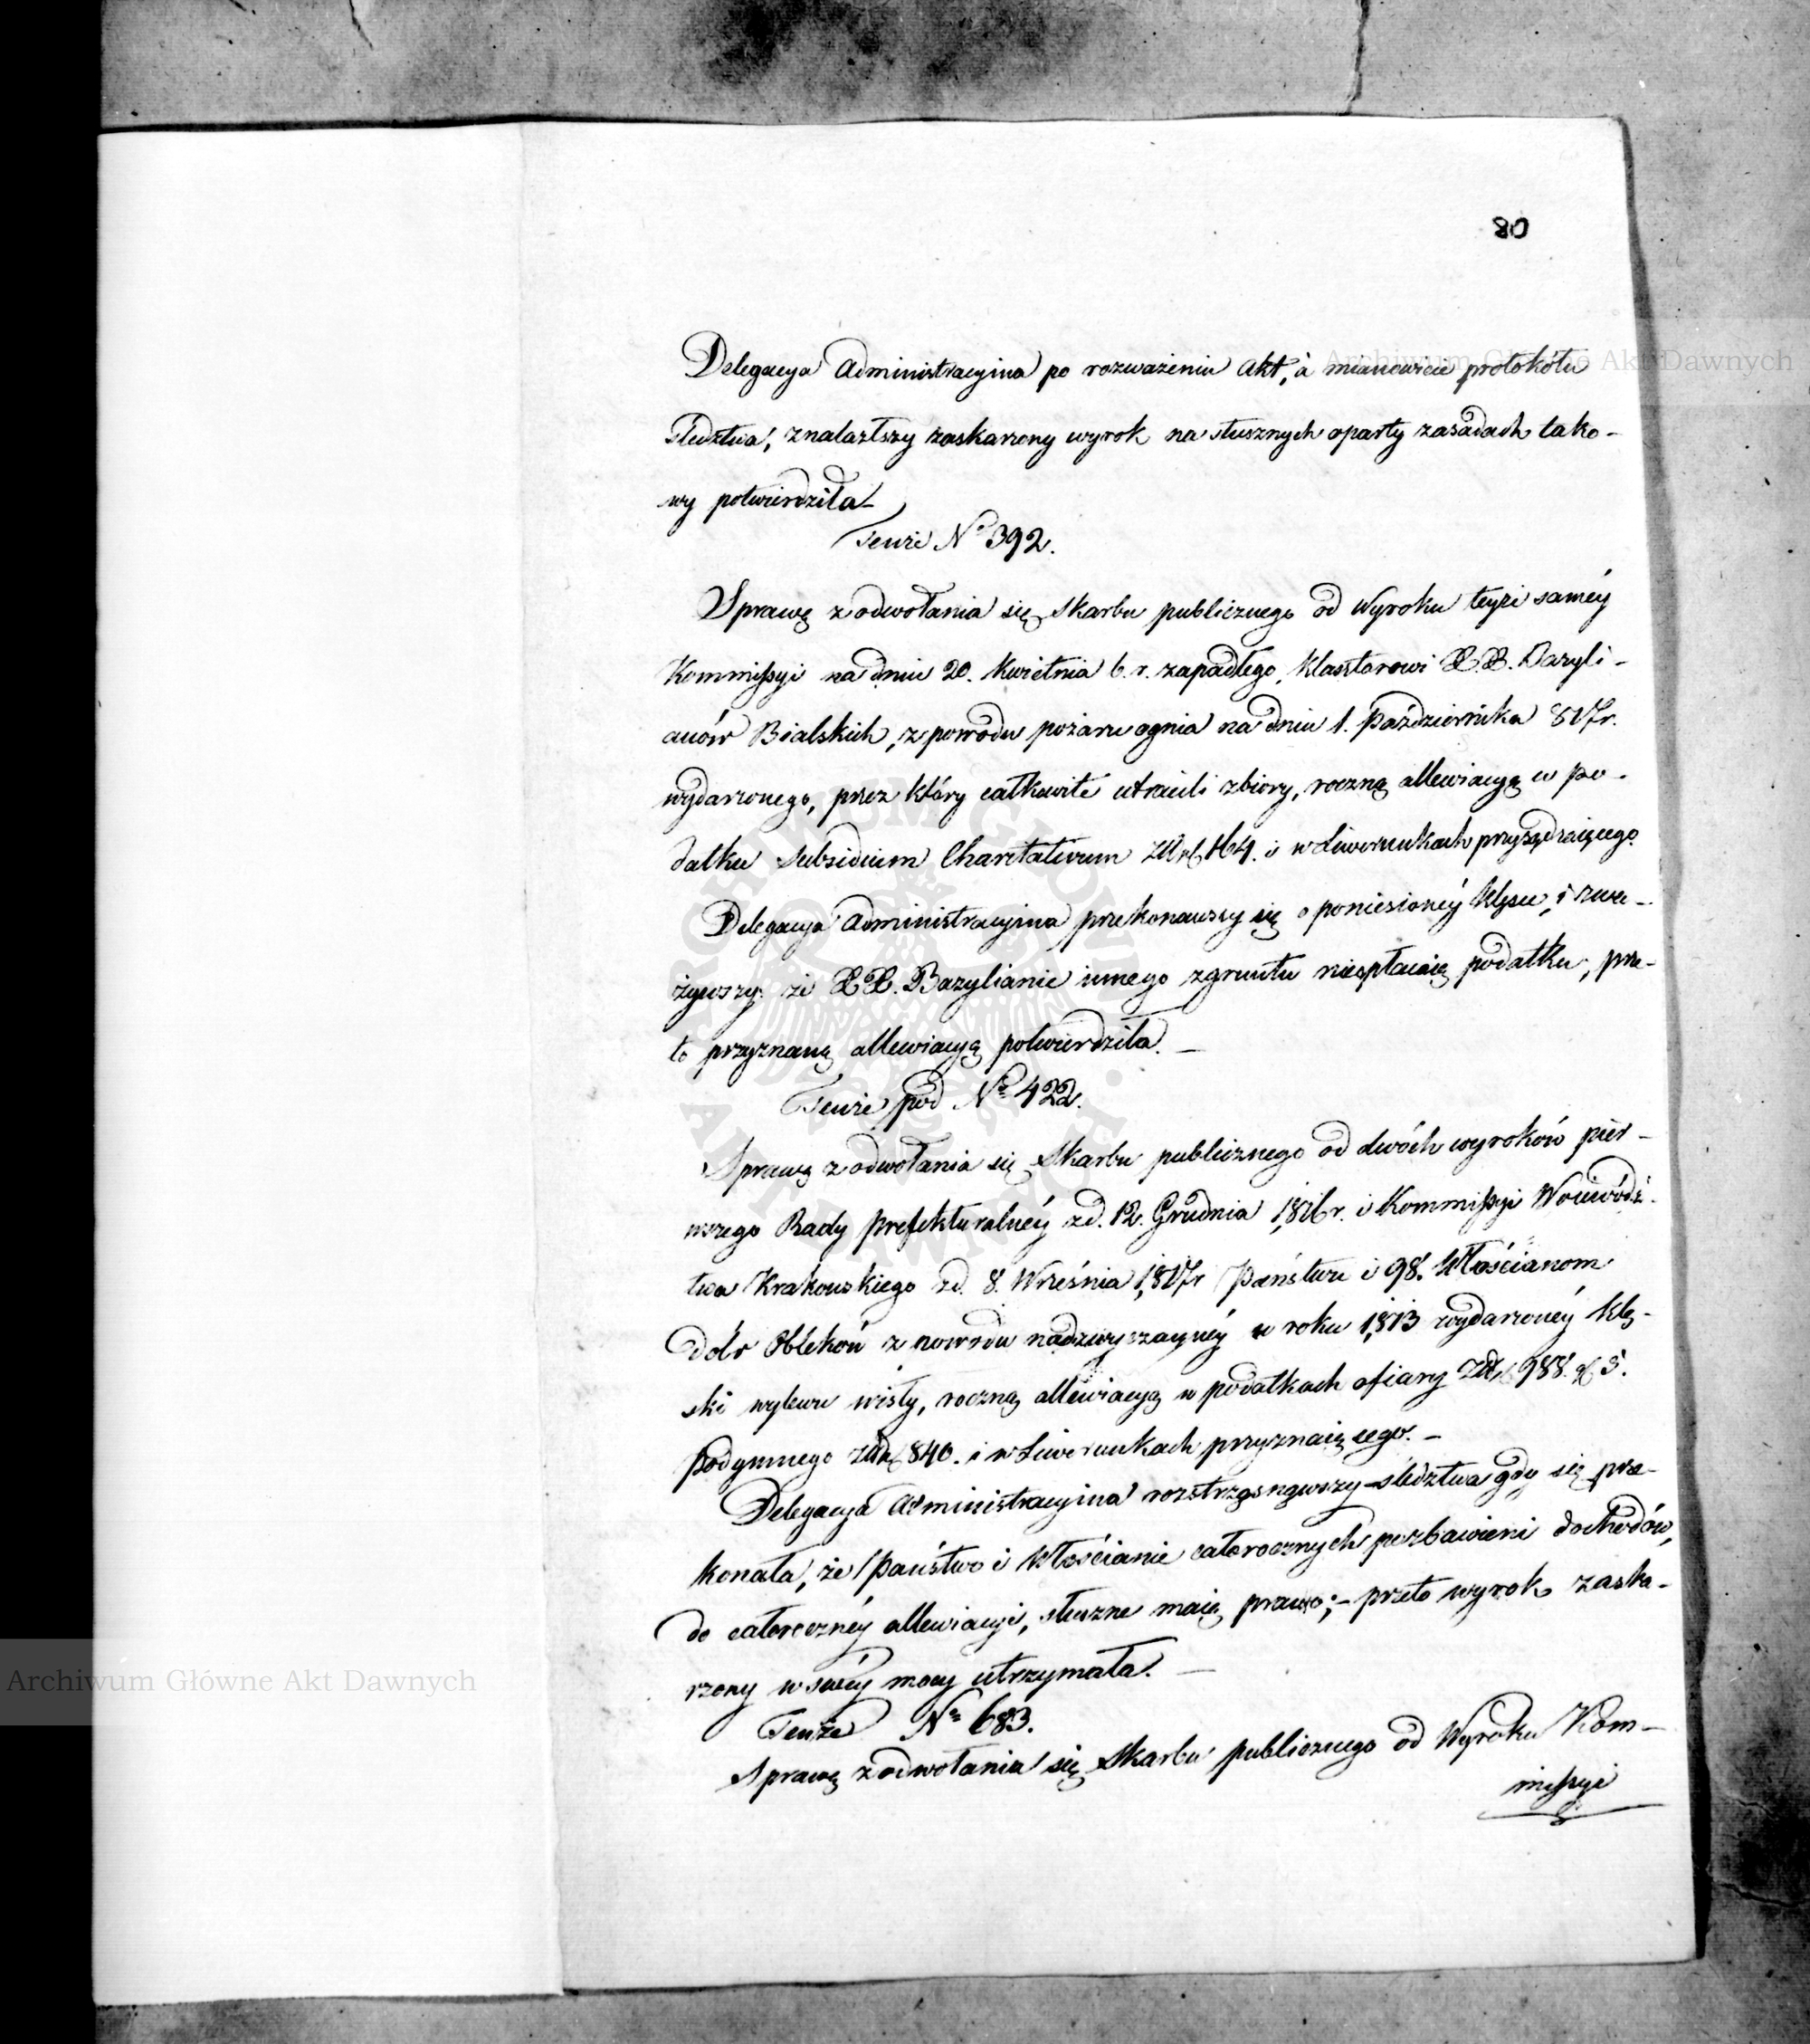 80
Delegacya Administracyina po rozważeniu Akt, à mianowicie protokółu
śledztwa, znalazłszy zaskarzony wyrok na słusznych oparty zasadach tako-
wy potwierdziła
Tenże No 392.
Sprawę z odwołania się Skarbu publicznego od Wyroku teyże saméy
Kommissyi na dniu 20. Kwietnia b. r. zapadłego, Klasztorowi XX. Bazyli-
anów Bialskich, z powodu pożaru ognia na dniu 1. Października 817r.
wydarzonego, przez który całkowite utracili zbiory, roczną allewiacyą w po-
datku Subsidium Charitativum Złpl 164. i w Liwerunkach przysądzaiącego.
Delegacya Administracyina przekonawszy się o poniesionéy klęsce, i zwa-
żywszy że XX. Bazylianie innego z gruntu nieopłacaią podatku, prze-
to przyznaną allewiacyą potwierdziła. —
Tenże pod No 422.
Sprawę z odwołania się Skarbu publicznego od dwóch wyroków pier-
wszego Rady Prefekturalnéy z d. 12. Grudnia 1816r. i Kommissyi Woiewódz-
twa Krakowskiego z d. 8. Września 1817r Państwu i 98. Włościanom
dóbr Oblekoń z powodu nadzwyczaynéy w roku 1813 wydarzonéy klę-
ski wylewu wisły, roczną allewiacyą w podatkach ofiary Złp 988. g 5.
Podymnego Złp 840. i w Liwerunkach przyznaiącego. —
Delegacya Administracyina rozstrząsnąwszy śledztwa gdy się prze-
konała, że Państwo i Włościanie całorocznych pozbawieni dochodów,
do całorocznéy allewiacyi, słuszne maią prawo; – przeto wyrok zaska-
rzony w swéy mocy utrzymała. —
Tenże No 683.
Sprawę z odwołania się Skarbu publicznego od Wyroku Kom-
missyi
Archiwum Główne Akt Dawnych
Archiwum Główne Akt Dawnych